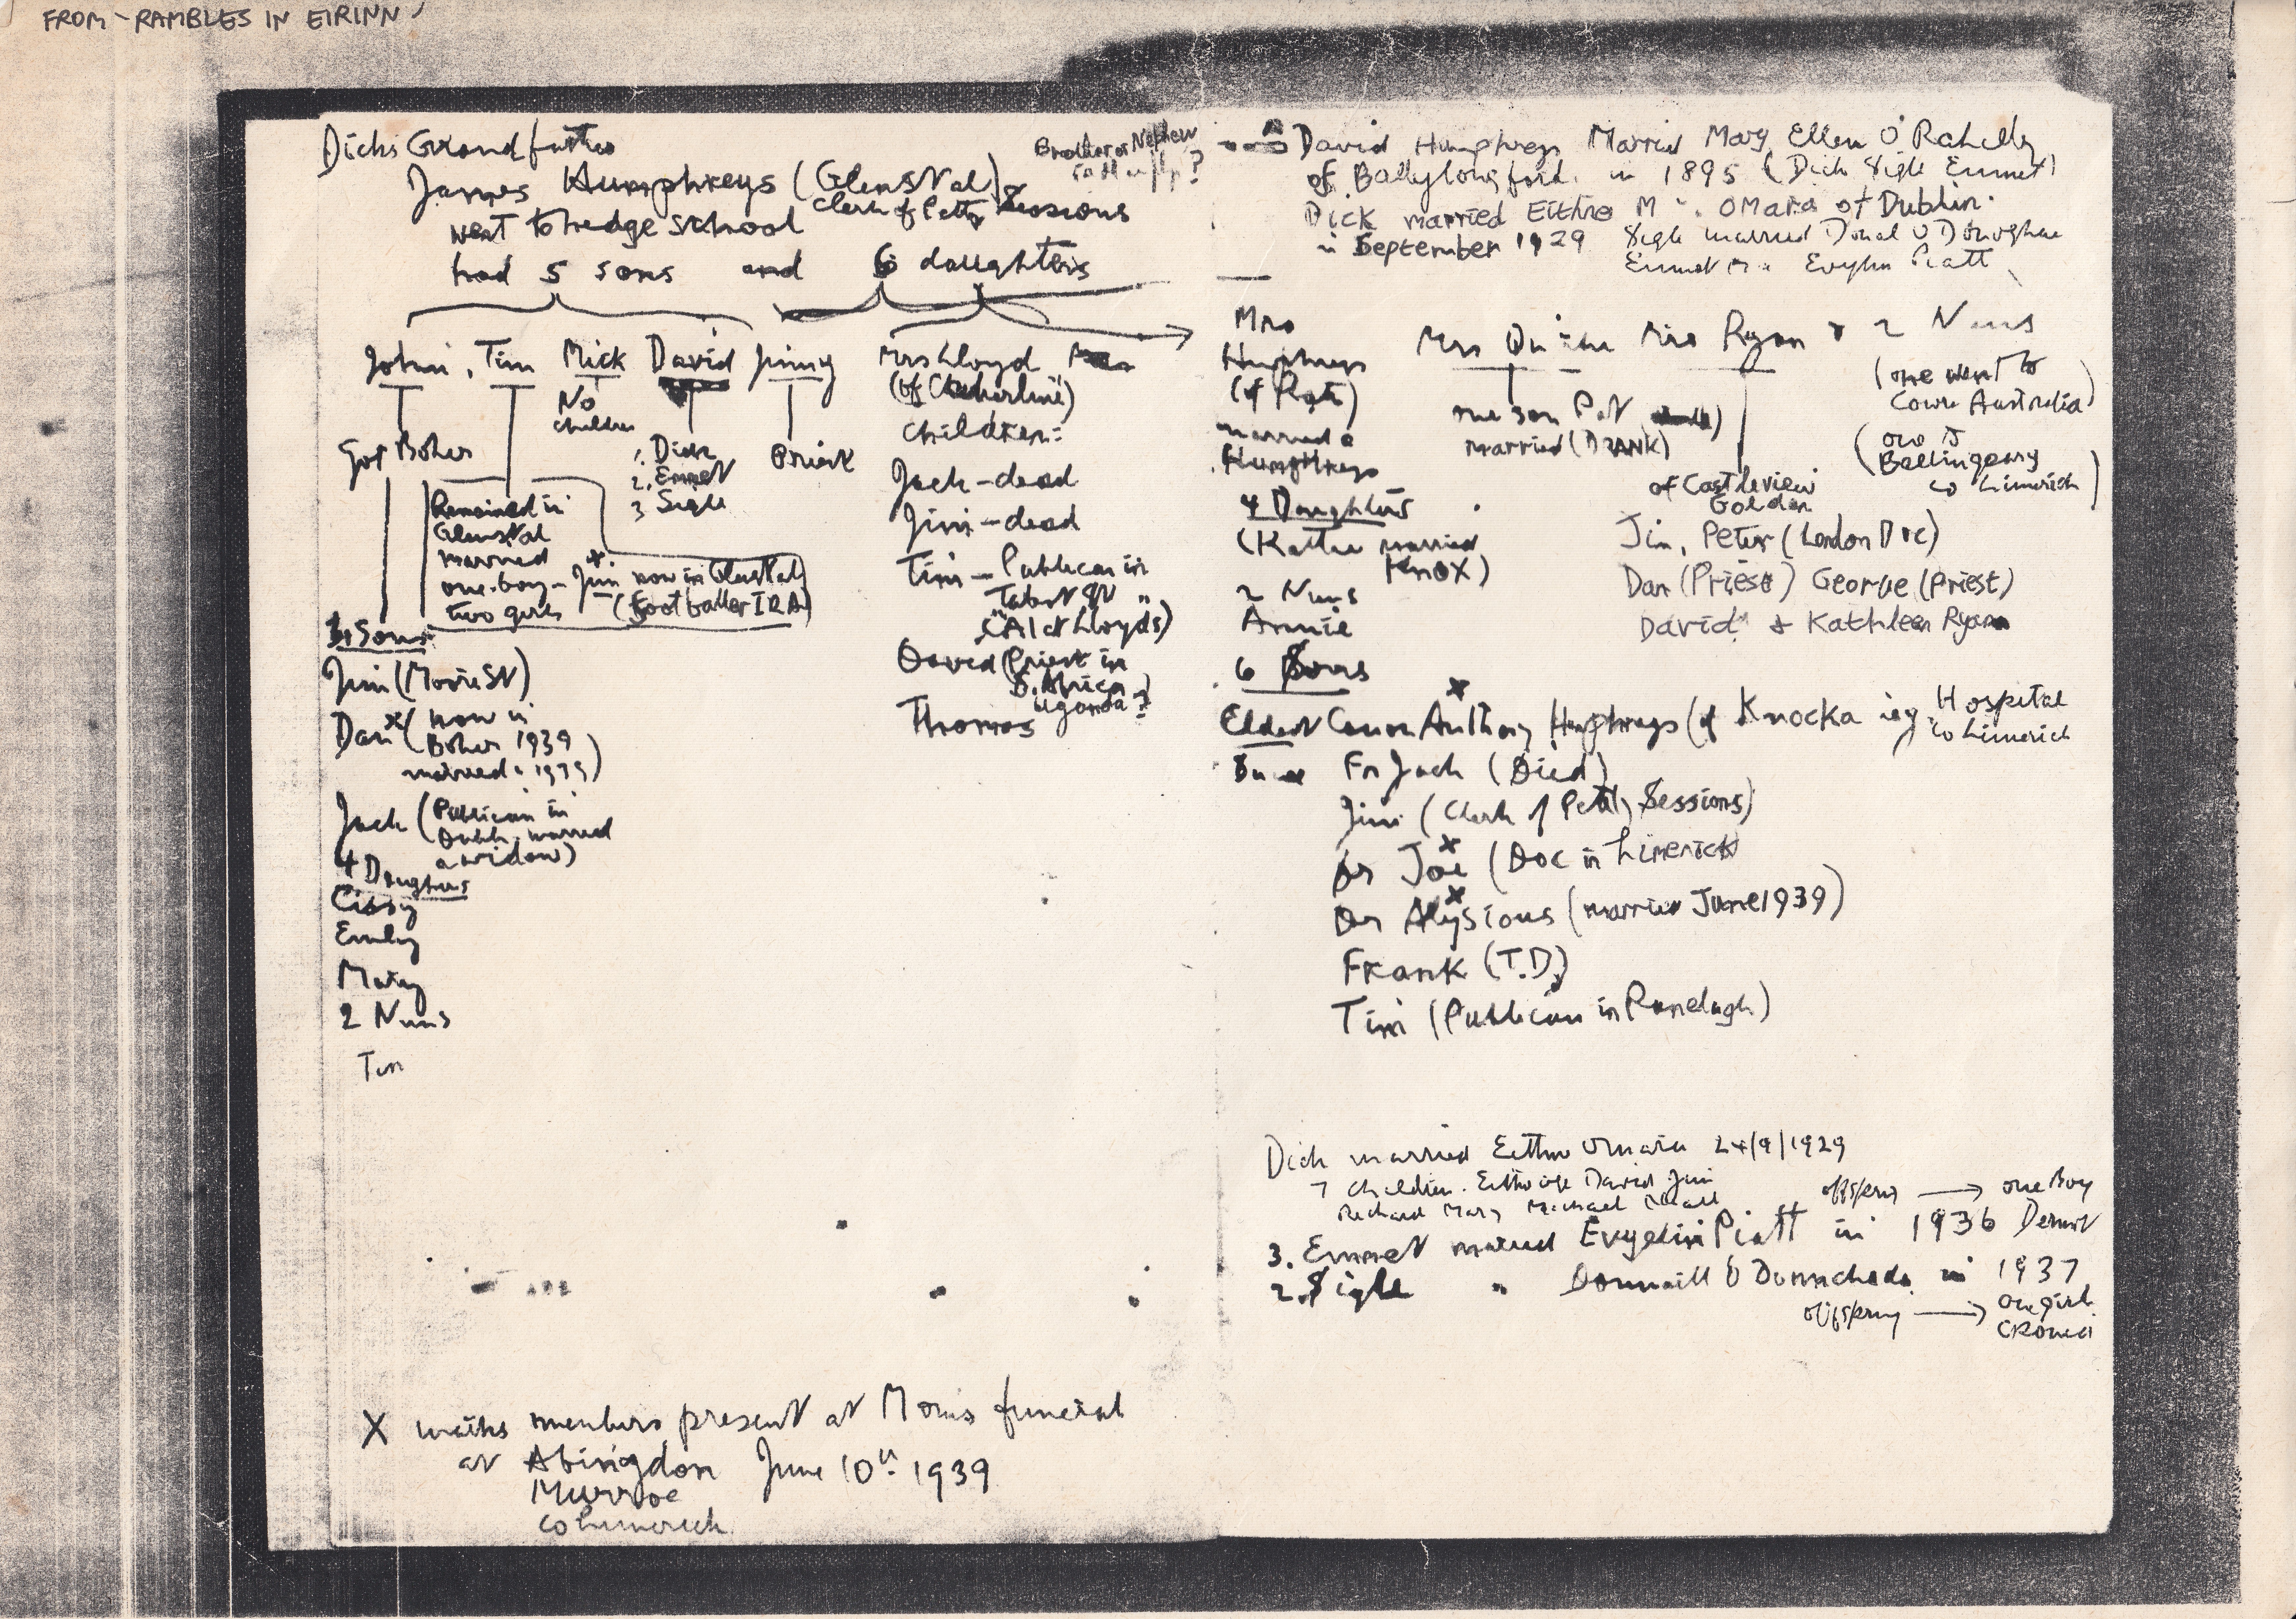 FROM - RAMBLES IN EIRINN
Dicks Grandfather
James Humphreys (Glenstal)
Clerk of Petty Sessions
Brother or Nephew
?
went to hedge school
had 5 sons and 6 daughters
John, Tim Mick David Jimmy
Got Boher
No
children
1. Dick
2. Emmet
3 Sigle
Priest
Remained in
Glenstal
married
one boy - Jim x now in Glenstal
two girls (footballer IRA)
3 Sons
Jim (Moore St)
Dan x (now in
Boher 1939
married 1939)
Jack (Publican in
Dublin married
a widow)
4 Daughters
Cissy
Emily
Mary
2 Nuns
Tim
Mrs Lloyd
(of Clonkerline)
children:
Jack - dead
Jim - dead
Tim - Publican in
Talbot St "
"(Al at Lloyds)
David (Priest in
S. Africa
Uganda?)
Thomas
X marks members present at Moms funeral
at Abingdon June 10th 1939
Murroe
Co Limerick
David Humphreys Married Mary Ellen O'Rahelly
of Ballylongford in 1895 (Dick Sigle Emmet)
Dick married Eithne M. OMara of Dublin.
in September 1929 Sigle married Donal O Donoghue
Emmet m. Evylin Piatt
Mrs
Humphreys
(of Pgte)
married a
Humphreys
4 Daughters
(Kattie married
Knox)
2 Nuns
Annie
6 Sons
Mrs Quinn
one son Pat
married (DRANK)
Mrs Ryan
of Castleview
Golden
Jim, Peter (London Doc)
Dan (Priest) George (Priest)
David & Kathleen Ryan
& 2 Nuns
(one went to
Cowra Australia)
(one is
Ballingarry
Co Limerick)
Eldest Canon Anthony x Humphreys (of Knockainey Hospital
Co Limerick
Fr Jack (Died)
Jim (Clerk of Petty Sessions)
Dr Joe x (Doc in Limerick
Dr Alysious x (married June 1939)
Frank (T.D)
Tim (Publican in Ranelagh)
Dick married Eithne Omara 24/9/1929
7 children. Eithne David Jim
Richard Mary Michael Niall
offspring → one Boy
3. Emmet married Evgelin Piatt in 1936 Dermot
2. Sigle " Domnaill O Donnchada in 1937
offspring → one girl
CRONEI